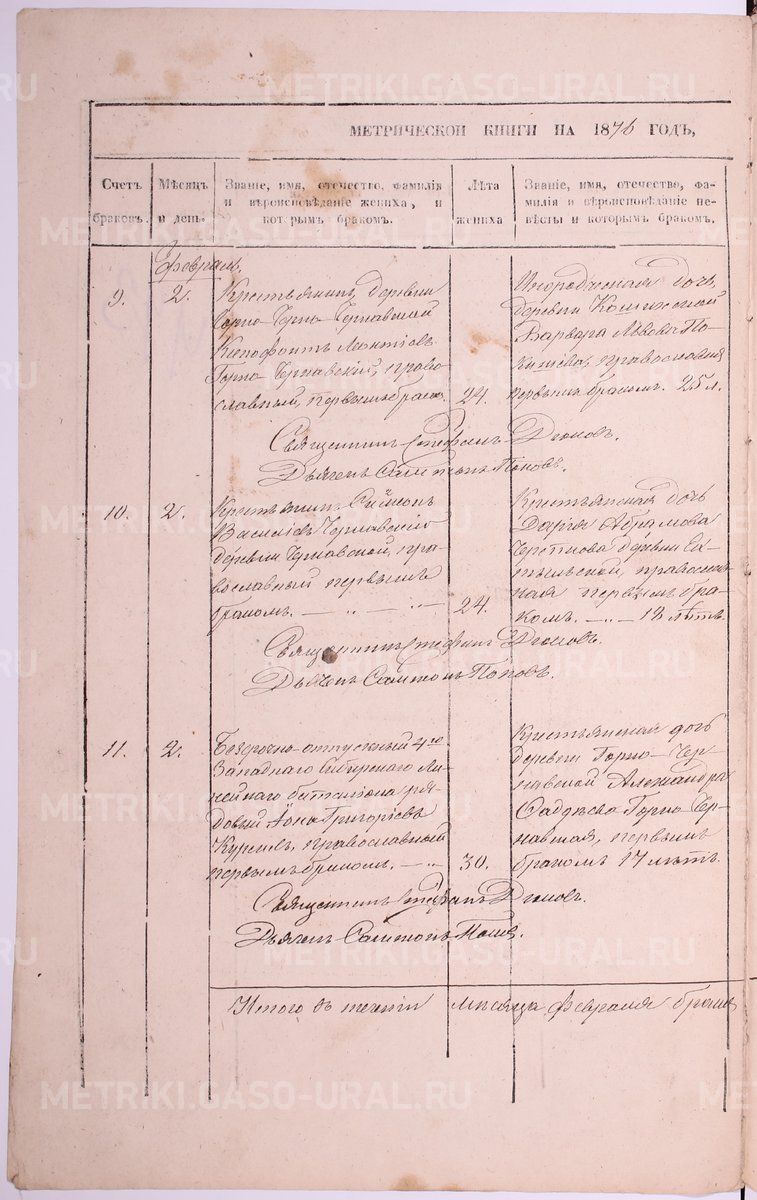 МЕТРИЧЕСКОЙ КНИГИ НА 1876 ГОДЪ,
Счетъ браковъ.
Мѣсяцъ и день.
Званіе, имя, отчество, фамилія
и вѣроисповѣданіе жениха, и
которымъ бракомъ.
Лѣта жениха
Званіе, имя, отчество, фа-
милія и вѣроисповѣданіе не-
вѣсты и которымъ бракомъ.
Февраль.
9.
2.
Крестьянинъ деревни
Горно-Чернавской
Ксенофонтъ Леонтіевъ
Горно-Чернавскій, право-
славный, первымъ браком.
24.
дочь
деревни
Варвара Львова
православная
первымъ бракомъ. 25 л.
Священникъ Стефанъ
Дьячекъ Сампсонъ Поповъ.
10.
2.
Крестьянинъ
Василіевъ Чернавскій
деревни Чернавской, пра-
вославный первымъ
бракомъ. — „ — „ —
24.
Крестьянская дочь
Дарья Абрамова
деревни
православ-
ная первымъ бра-
комъ. — „ — 18 лѣтъ.
Священникъ Стефанъ
Дьячекъ Сампсонъ Поповъ.
11.
2.
Безсрочно-отпускный 4го
Западнаго Сибирскаго Ли-
нейнаго баталіона ря-
довый Іона Григорьевъ
православный
первымъ бракомъ. — „
30.
Крестьянская дочь
деревни Горно-Чер-
навской Александра
Фадѣева Горно-Чер-
навская, первымъ
бракомъ 17 лѣтъ.
Священникъ Стефанъ
Дьячекъ Сампсонъ Поповъ.
Итого въ теченіи мѣсяца Февраля
METRIKI.GASO-URAL.RU